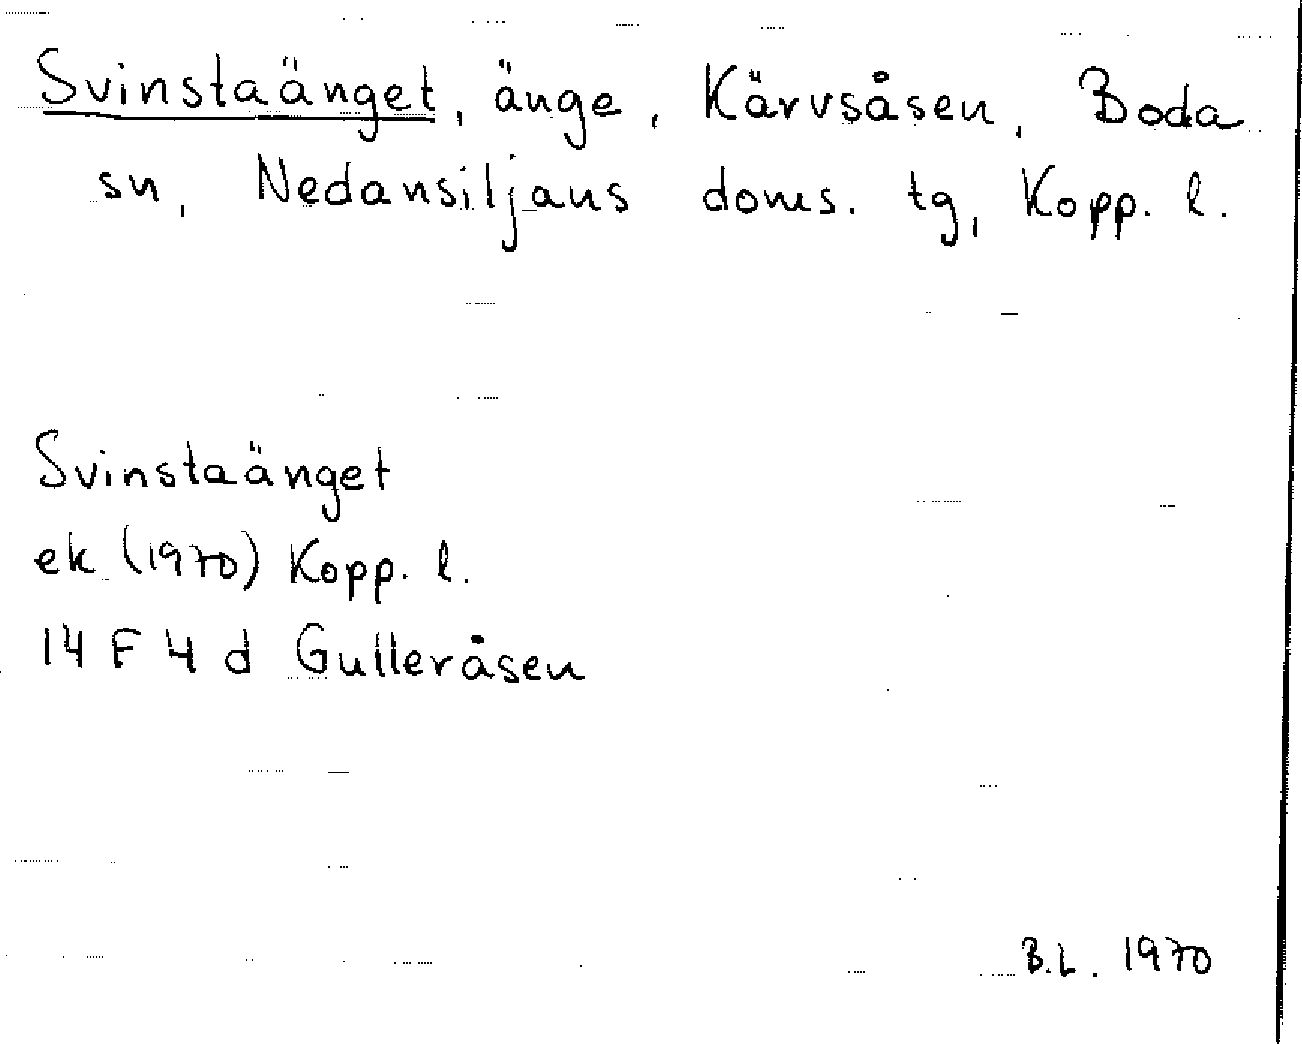 Svinstaänget, änge, Kärvsåsen, Boda
sn, Nedansiljans doms. tg, Kopp. l.
Svinstaänget
ek (1970) Kopp. l.
14 F 4 d Gulleråsen
B.L. 1970